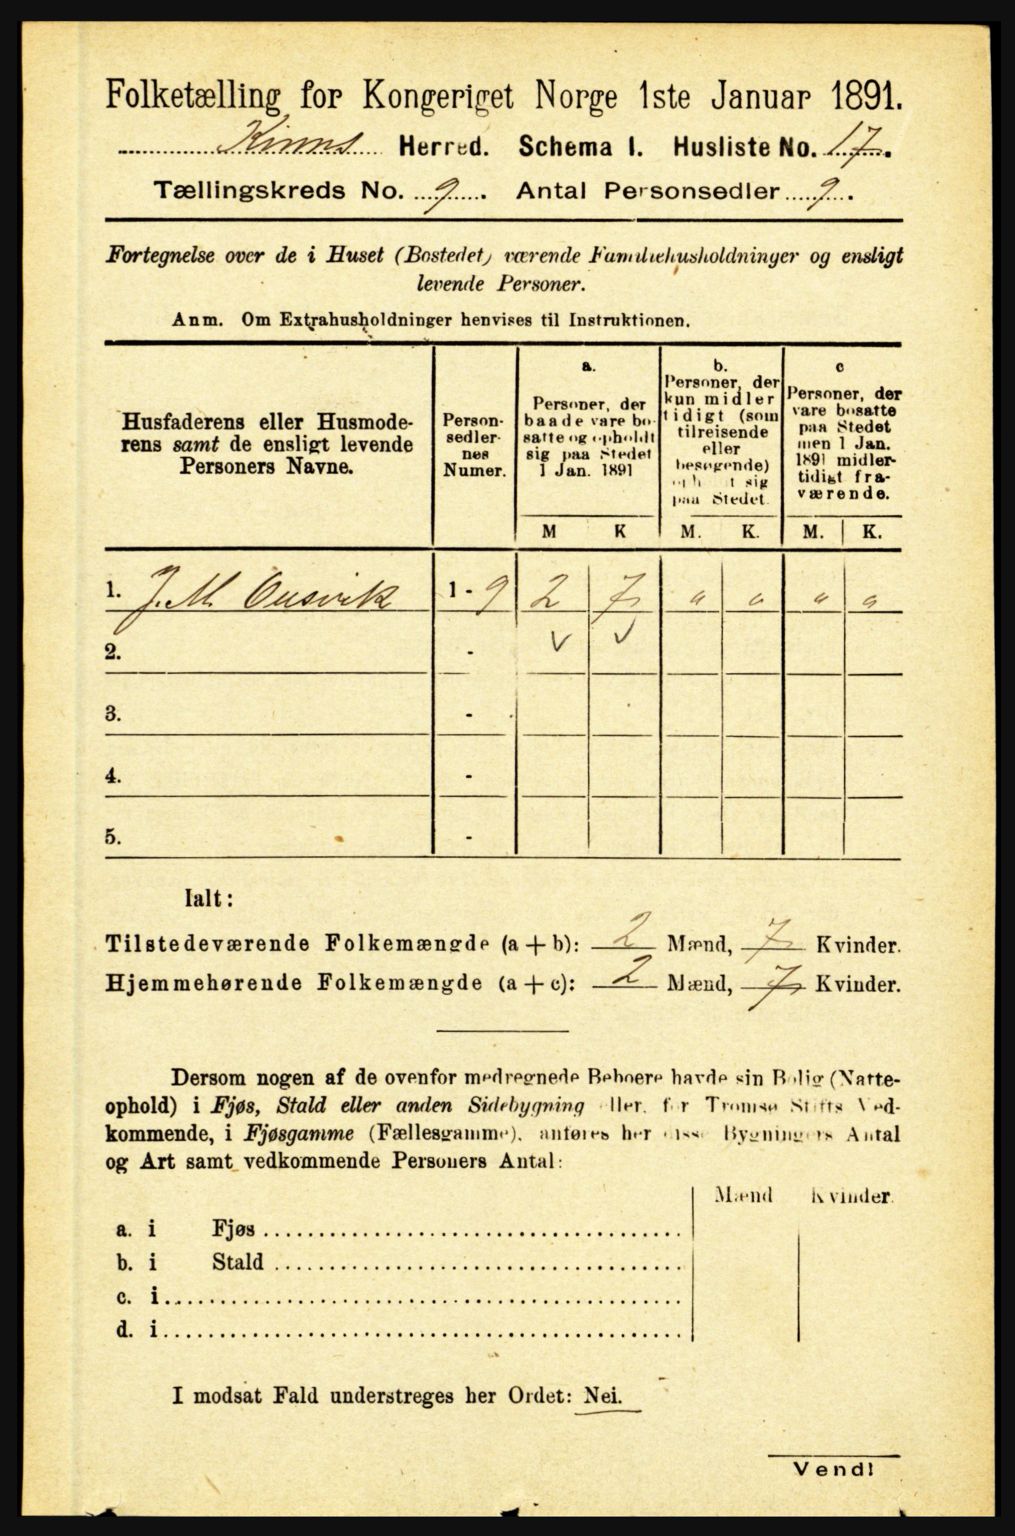 Folketælling for Kongeriget Norge 1ste Januar 1891.
Kinns Herred. Schema I. Husliste No. 17.
Tællingskreds No. 9. Antal Personsedler 9.
Fortegnelse over de i Huset (Bostedet) værende Familiehusholdninger og ensligt
levende Personer.
Anm. Om Extrahusholdninger henvises til Instruktionen.
Husfaderens eller Husmode-
rens samt de ensligt levende
Personers Navne.
Person-
sedler-
nes
Numer.
a.
Personer, der
baade vare bo-
satte og opholdt
sig paa Stedet
1 Jan. 1891
M K
b.
Personer, der
kun midler
tidigt (som
tilreisende
eller
besøgende)
opholdt sig
paa Stedet.
M. K.
c
Personer, der
vare bosatte
paa Stedet
men 1 Jan.
1891 midler-
tidigt fra-
værende.
M. K.
1. J. M. Ousvik 1 - 9 2 7 " " " "
2. - v v
3. -
4. -
5. -
Ialt:
Tilstedeværende Folkemængde (a + b): 2 Mænd, 7 Kvinder.
Hjemmehørende Folkemængde (a + c): 2 Mænd, 7 Kvinder.
Dersom nogen af de ovenfor medregnede Beboere havde sin Bolig (Natte-
ophold) i Fjøs, Stald eller anden Sidebygning eller, for Tromsø Stifts Ved-
kommende, i Fjøsgamme (Fællesgamme), anføres her disse Bygningers Antal
og Art samt vedkommende Personers Antal:
Mænd Kvinder.
a. i Fjøs
b. i Stald
c. i
d. i
I modsat Fald understreges her Ordet: Nei.
Vend!